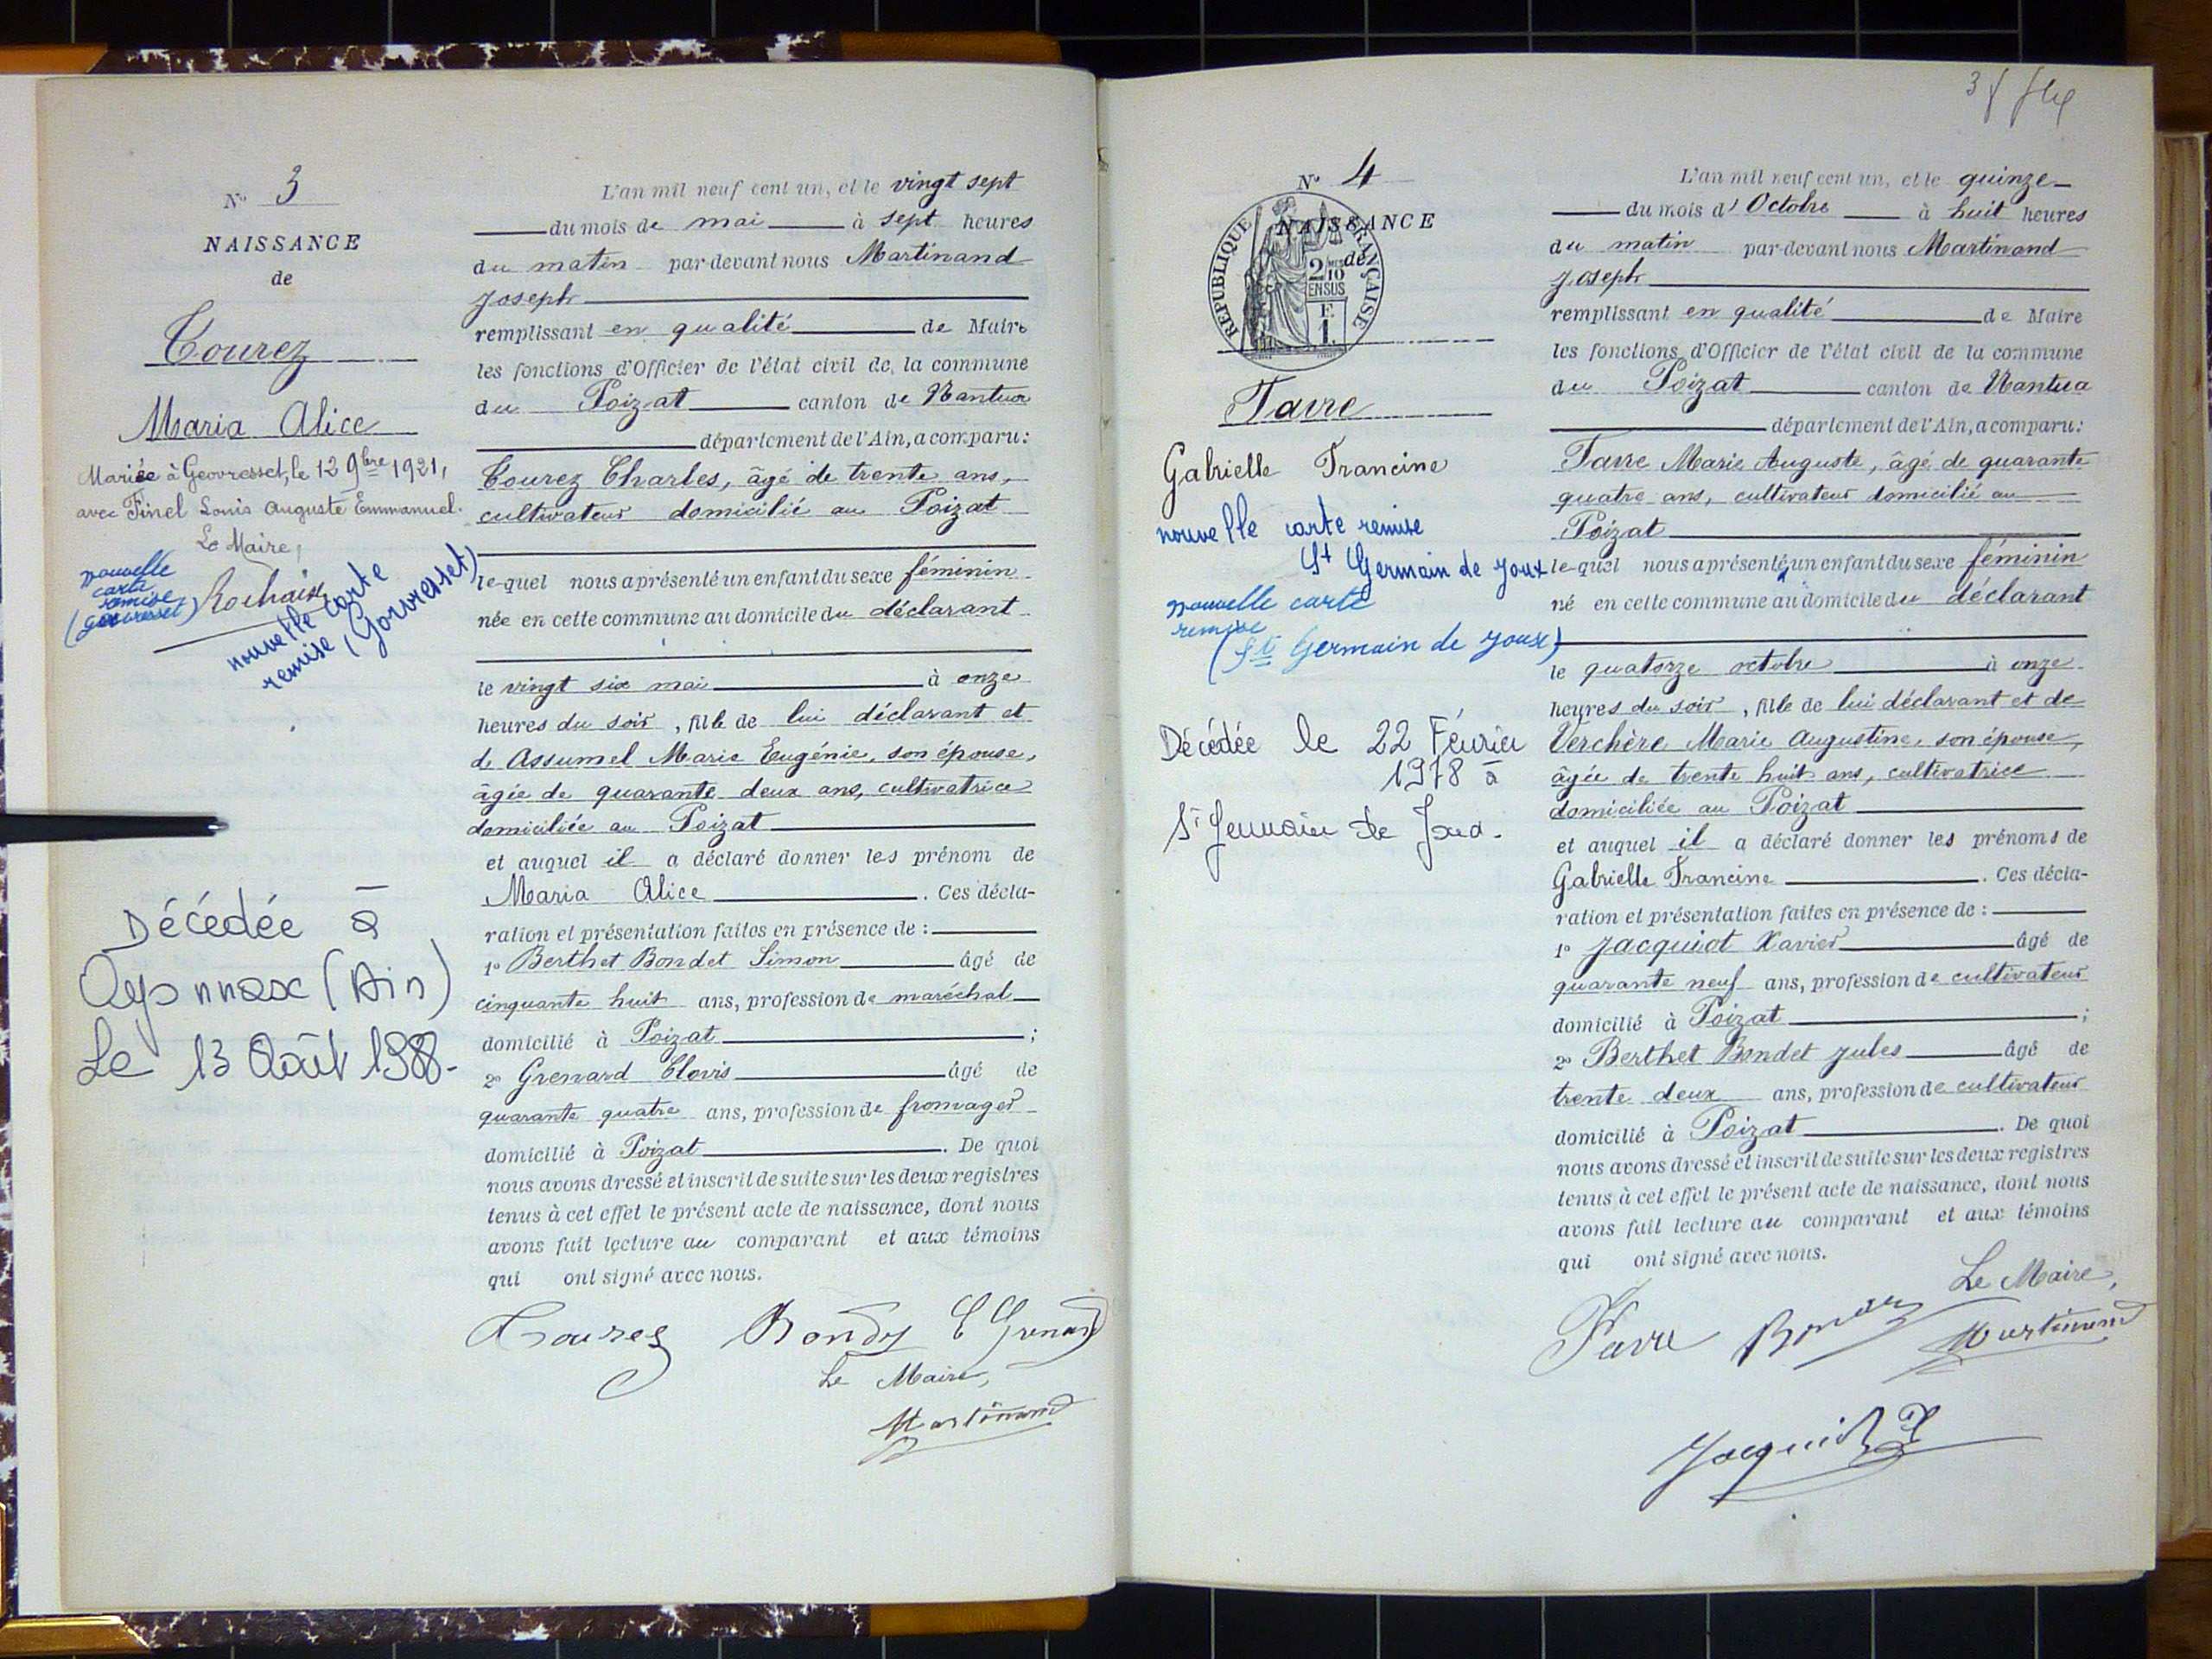 N° 3
NAISSANCE
de
Tourez
Maria Alice
Mariée à Geovresset, le 12 9bre 1921,
avec Finel Louis Auguste Emmanuel.
Le Maire,
Rochaix
nouvelle
carte
remise
(geovresset)
nouvelle carte
remise (Geovresset)
Décédée à
Oyonnax (Ain)
Le 13 Août 1988.
L'an mil neuf cent un, et le vingt sept
du mois de mai à sept heures
du matin par-devant nous Martinand
Joseph
remplissant en qualité de Maire
les fonctions d'Officier de l'état civil de la commune
du Poizat canton de Nantua
département de l'Ain, a comparu:
Tourez Charles, âgé de trente ans,
cultivateur domicilié au Poizat
le-quel nous a présenté un enfant du sexe féminin
née en cette commune au domicile du déclarant
le vingt six mai à onze
heures du soir, fille de lui déclarant et
d. Assumel Marie Eugénie, son épouse,
âgée de quarante deux ans, cultivatrice
domiciliée au Poizat
et auquel il a déclaré donner les prénom de
Maria Alice. Ces décla-
ration et présentation faites en présence de :
1° Berthet Bondet Simon âgé de
cinquante huit ans, profession de maréchal
domicilié à Poizat ;
2° Grenard Clovis âgé de
quarante quatre ans, profession de fromager
domicilié à Poizat. De quoi
nous avons dressé et inscrit de suite sur les deux registres
tenus à cet effet le présent acte de naissance, dont nous
avons fait lecture au comparant et aux témoins
qui ont signé avec nous.
Tourez Bondy C Grenard
Le Maire,
Martinand
N° 4
NAISSANCE
de
RÉPUBLIQUE FRANÇAISE
2/10
EN SUS
Favre
Gabrielle Francine
nouvelle carte remise
St Germain de Joux
nouvelle carte
remise
(St Germain de Joux)
Décédée le 22 Février
1978 à
St Germain de Joux.
L'an mil neuf cent un, et le quinze
du mois d'Octobre à huit heures
du matin par-devant nous Martinand
Joseph
remplissant en qualité de Maire
les fonctions d'Officier de l'état civil de la commune
du Poizat canton de Nantua
département de l'Ain, a comparu:
Favre Marie Auguste, âgé de quarante
quatre ans, cultivateur domicilié au
Poizat
le-quel nous a présenté un enfant du sexe féminin
né en cette commune au domicile du déclarant
le quatorze octobre à onze
heures du soir, fille de lui déclarant et de
Verchère Marie Augustine, son épouse,
âgée de trente huit ans, cultivatrice
domiciliée au Poizat
et auquel il a déclaré donner les prénoms de
Gabrielle Francine. Ces décla-
ration et présentation faites en présence de :
1° Jacquiot Xavier âgé de
quarante neuf ans, profession de cultivateur
domicilié à Poizat ;
2° Berthet Bondet Jules âgé de
trente deux ans, profession de cultivateur
domicilié à Poizat. De quoi
nous avons dressé et inscrit de suite sur les deux registres
tenus à cet effet le présent acte de naissance, dont nous
avons fait lecture au comparant et aux témoins
qui ont signé avec nous.
Le Maire,
Favre Martinand
Jacquiot X